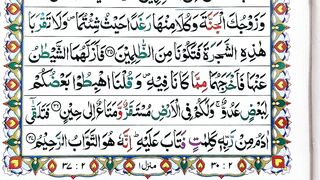 وَزَوْجُكَ الْجَنَّةَ وَكُلَا مِنْهَا رَغَدًا حَيْثُ شِئْتُمَا وَلَا تَقْرَبَا
هٰذِهِ الشَّجَرَةَ فَتَكُوْنَا مِنَ الظّٰلِمِيْنَ ﴿۳۵﴾ فَاَزَلَّهُمَا الشَّيْطٰنُ
عَنْهَا فَاَخْرَجَهُمَا مِمَّا كَانَا فِيْهِ وَقُلْنَا اهْبِطُوْا بَعْضُكُمْ
لِبَعْضٍ عَدُوٌّ وَلَكُمْ فِي الْاَرْضِ مُسْتَقَرٌّ وَّمَتَاعٌ اِلٰى حِيْنٍ ﴿۳۶﴾ فَتَلَقّٰٓى
اٰدَمُ مِنْ رَّبِّهٖ كَلِمٰتٍ فَتَابَ عَلَيْهِ اِنَّهٗ هُوَ التَّوَّابُ الرَّحِيْمُ
۲ : ۳۰ منزل ۱ ۲ : ۳۷